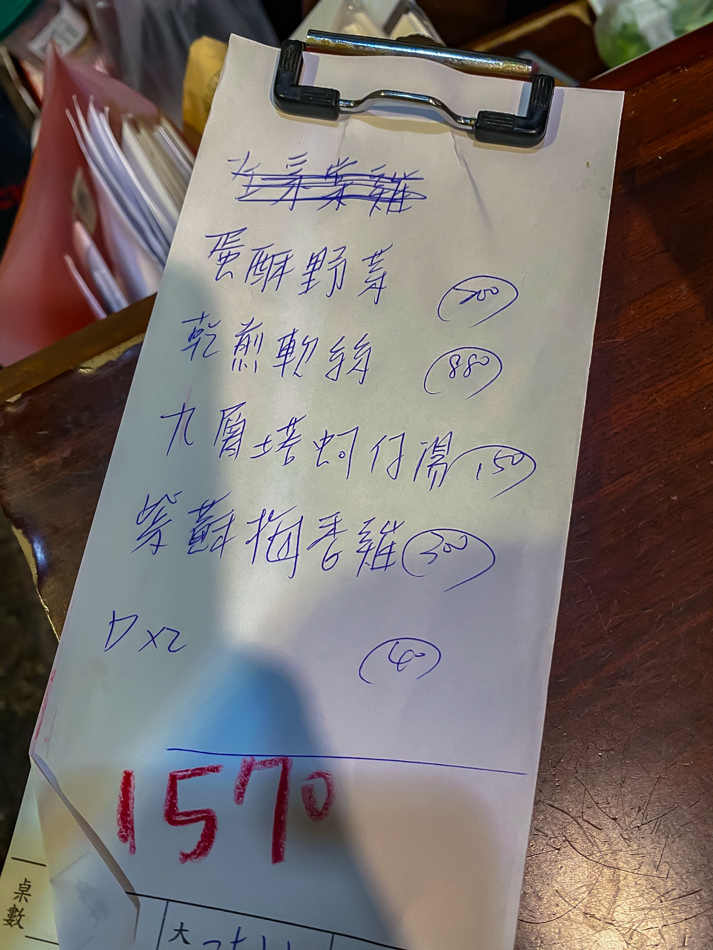 左宗棠雞
蛋酥野菜 200
乾煎軟絲 880
九層塔蚵仔湯 150
紫蘇梅香雞 300
D x2 40
1570
桌數
大